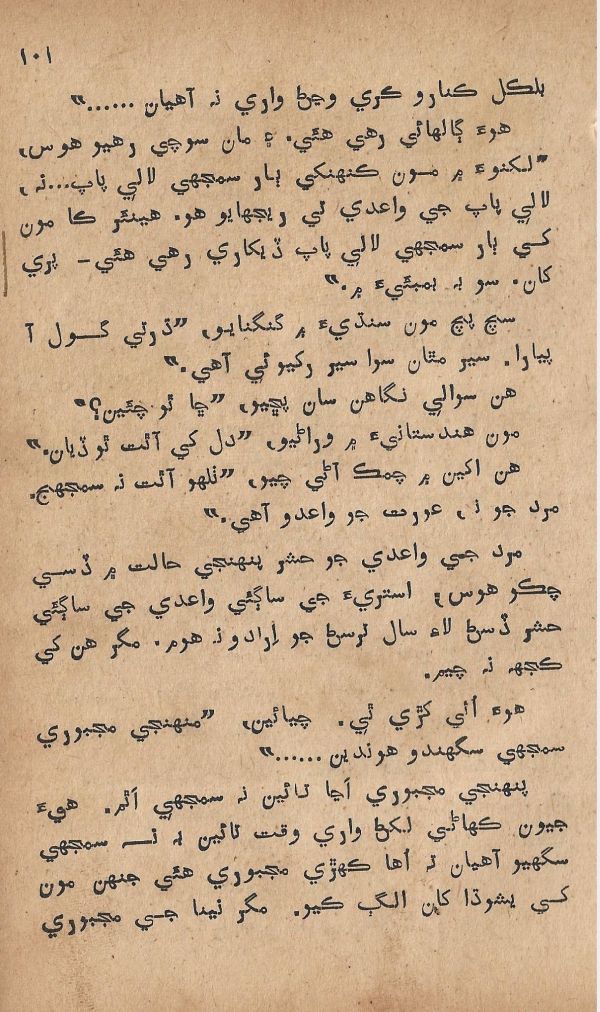 ۱۰۱
بلڪل ڪنارو ڪري وڃڻ واري نہ آهيان......”
هوءَ ڳالهائي رهي هئي. ۽ مان سوچي رهيو هوس،
”لکنوءَ ۾ مون ڪنهنکي ٻار سمجهي لالي پاپ...نہ،
لالي پاپ جي واعدي تي ريجهايو هو. هينئر ڪا مون
کي ٻار سمجهي لالي پاپ ڏيکاري رهي هئي- پري
کان. سو بہ بمبئيءَ ۾.”
سچ پچ مون سنڌيءَ ۾ گنگنايو، ”ڌرتي گول آ
پيارا. سير مٿان سوا سير رکيوئي آهي.”
هن سوالي نگاهن سان پڇيو، ”ڇا ٿو چئين؟”
مون هندستانيءَ ۾ وراڻيو، ”دل کي آٿت ٿو ڏيان.”
هن اکين ۾ چمڪ آڻي چيو، ”ٺلهو آٿت نہ سمجهج.
مرد جو نہ، عورت جو واعدو آهي.”
مرد جي واعدي جو حشر پنهنجي حالت ۾ ڏسي
چڪو هوس، استريءَ جي ساڳئي واعدي جي ساڳئي
حشر ڏسڻ لاءِ سال ترسڻ جو اِرادو نہ هوم. مگر هن کي
ڪجهہ نہ چيم.
هوءَ اُٿي کڙي ٿي. چيائين، ”منهنجي مجبوري
سمجهي سگهندو هوندين......”
پنهنجي مجبوري اَڃا تائين نہ سمجهي اَٿم. هيءَ
جيون ڪهاڻي لکڻ واري وقت تائين بہ نہ سمجهي
سگهيو آهيان تہ اُها ڪهڙي مجبوري هئي جنهن مون
کي يشوڌا کان الڳ ڪيو. مگر نينا جي مجبوري